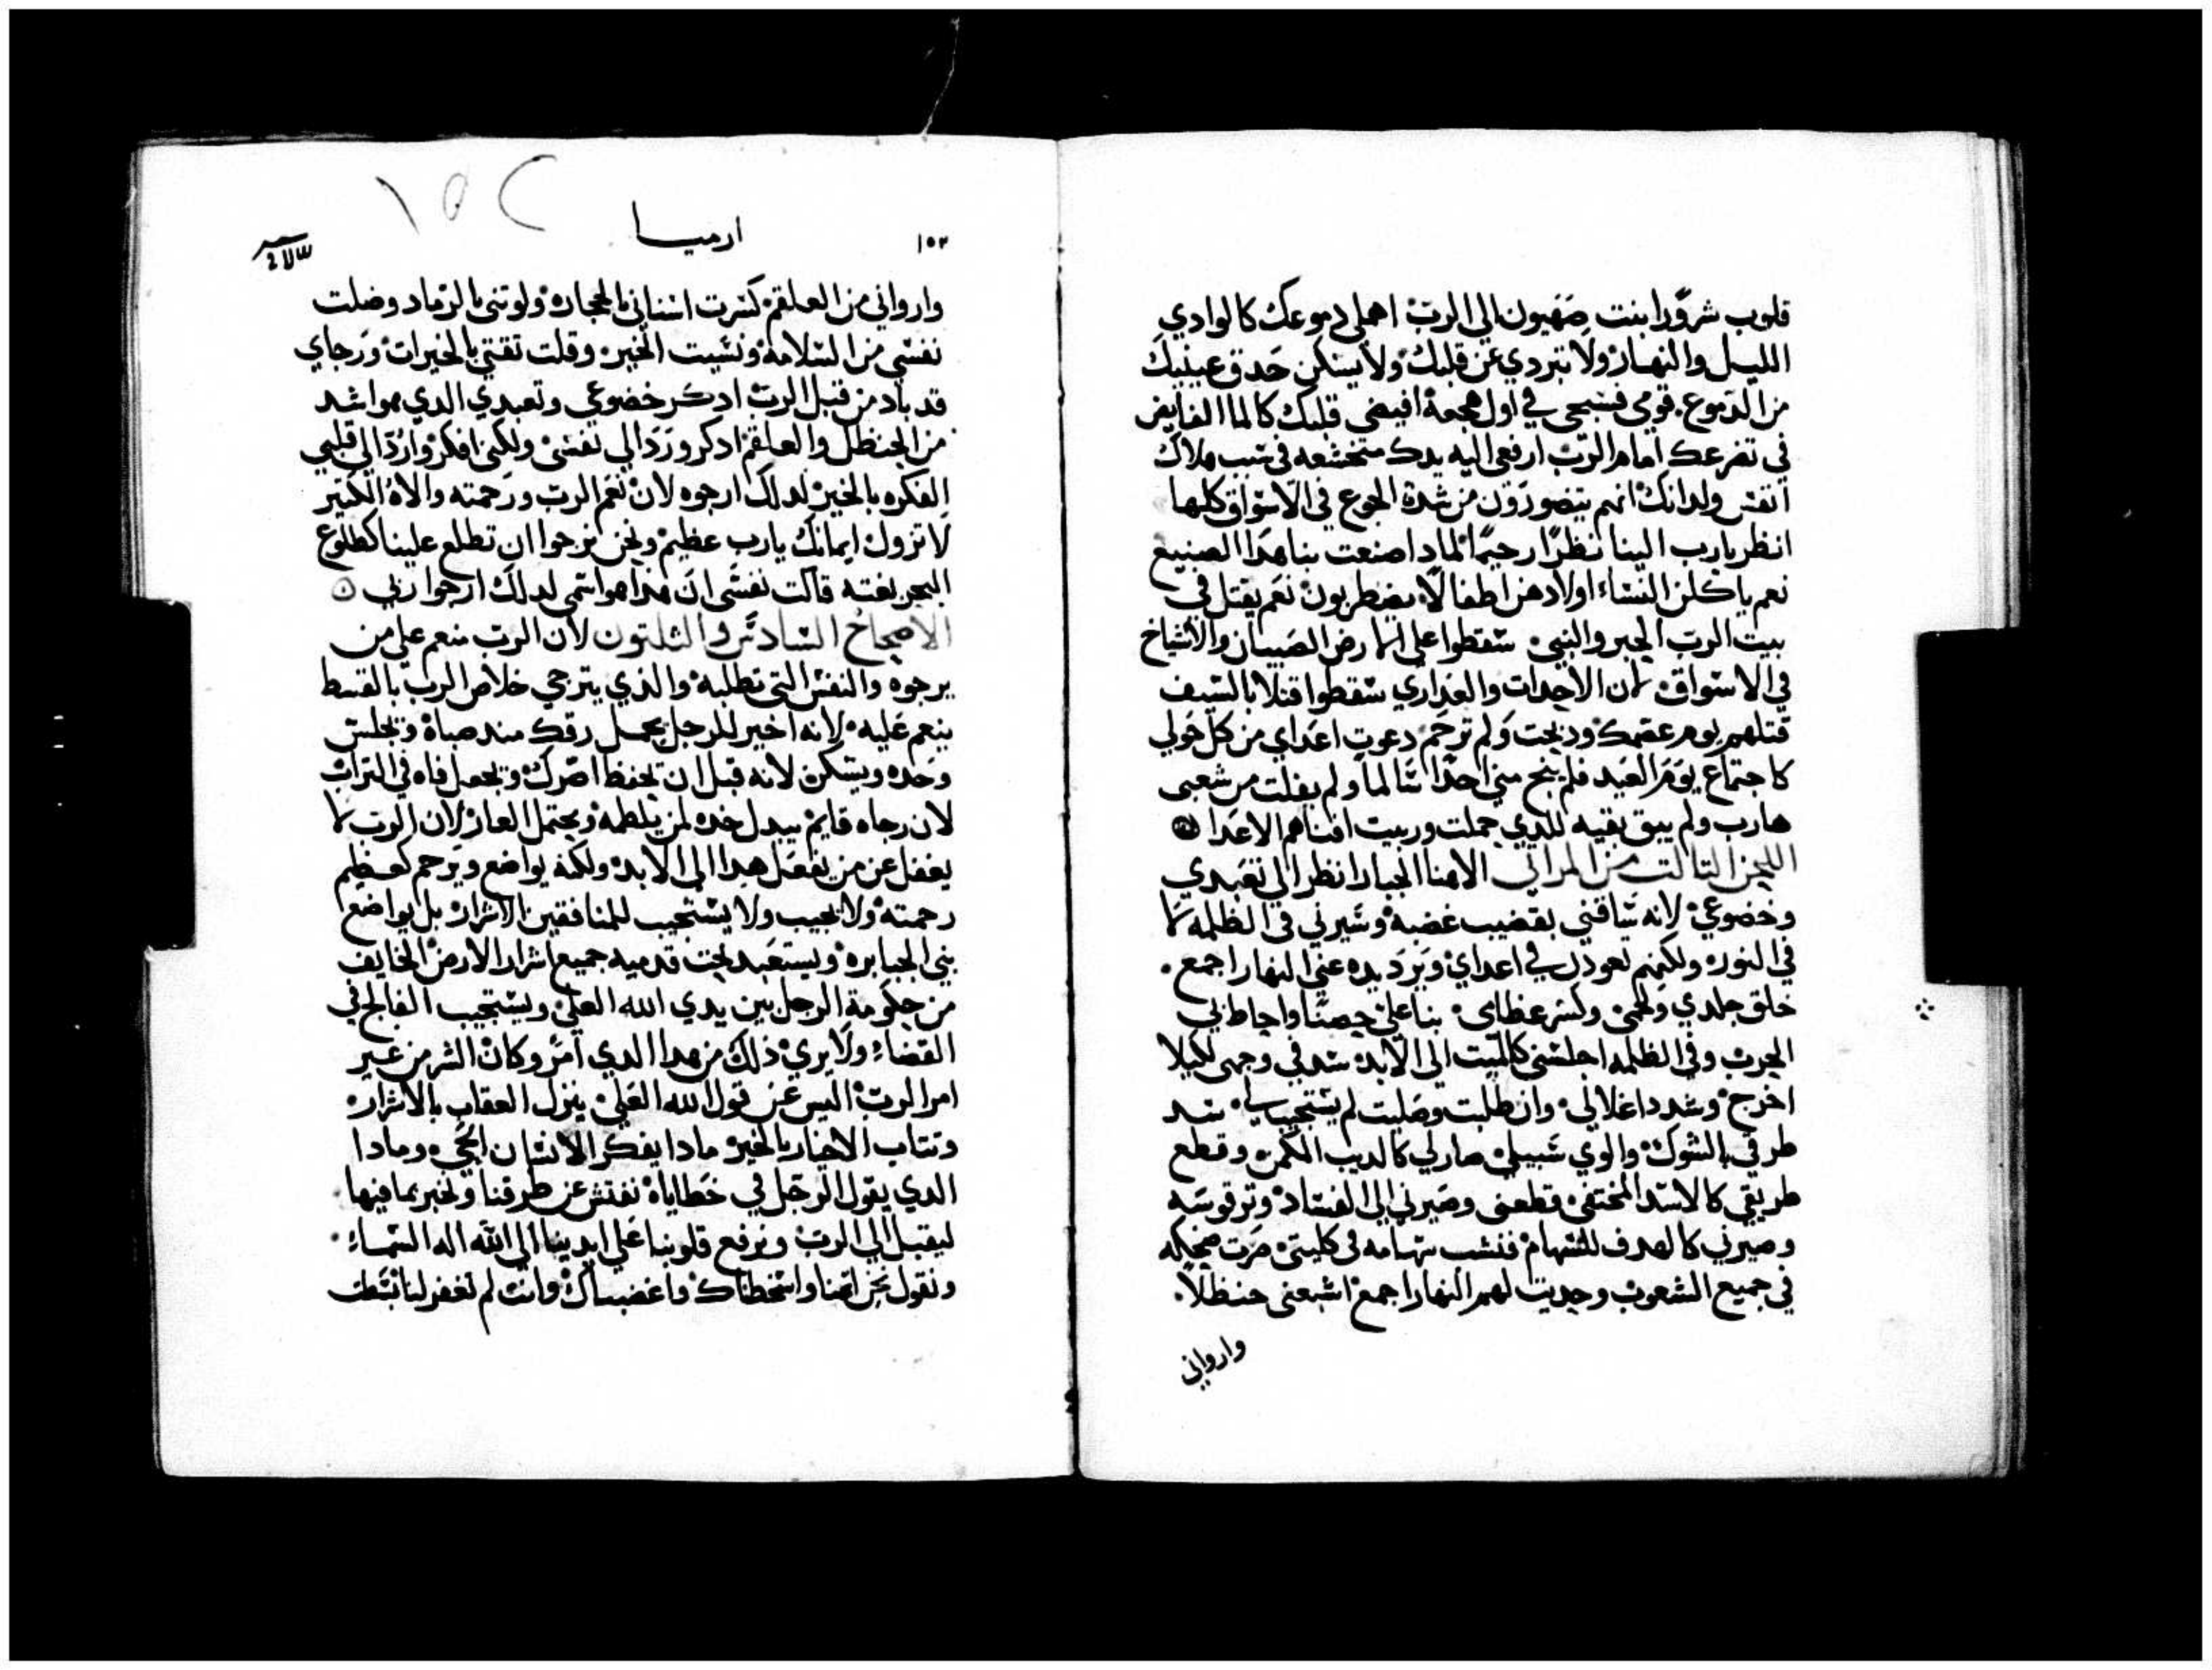 قلوب شرورا بنت صهيون الي الرب اهملي دموعك كالوادي
الليل والنهار ولا تبردي عن قلبك ولا يسكن حدق عينيك
من الدموع. قومي فسبحي في اول هجعة افيضي قلبك كالما الفايض
في تضرعك امام الرب ارفعي اليه يدك متخشعه في سبب هلاك
انفس ولدانك انهم يتضورون من شدة الجوع في الاسواق كلها
انظر يارب الينا نظرا رحيما لمادا صنعت بنا هدا الصنيع
نعم ياكلن النساء اولادهن اطفالا يضطربون نعم يقتل في
بيت الرب الحبر والنبي سقطوا علي الارض الصبيان والاشياخ
في الاسواق لان الاحدات والعداري سقطوا قتلا بالسيف
قتلهم يوم غضبك ودبحت ولم ترحم دعوت اعداي من كل حولي
كاجتماع يوم العيد فلم ينج مني احدا سالما ولم يفلت من شعبي
هارب ولم يبق بقيه للدي حملت وربيت افناهم الاعدا
اللحن التالت من المراتي الاهنا الجبار انظر الي تعبدي
وخضوعي لانه ساقني بقضيب غضبه وسيرني في الظلمه لا
في النور ولكنهم لعودل في اعداي ويرد يده عني النهار اجمع.
خلق جلدي ولحمي وكسر عظامي بنا علي حصنا واحاط بي
الحرب وفي الظلمه اجلسني كالميت الي الابد سد في وجهي لكيلا
اخرج وشدد اغلالي وان طلبت وصليت لم يستجيب لي سد
طرقي بالشوك والوي سبيلي صار لي كالديب الكمن وقطع
طريقي كالاسد المختفي وقطعني وصيرني الي الفساد وتر قوسه
وصيرني كالهدف للسهام فنشب سهامه في كليتي صرت ضحكه
في جميع الشعوب وحديت لهم النهار اجمع اشبعني حنظلا.
وارواني
١٥٢
ارميا
١٥٢
وارواني من العلقم كسرت اسناني بالحجاره ولوتني بالرماد وضلت
نفسي من السلامه ونسيت الخير وقلت تقتي بالخيرات ورجاي
قد باد من قبل الرب ادكر خضوعي وتعبدي الدي هو اشد
من الحنظل والعلقم ادكر ورد الي نفسي ولكني افكر وارد الي قلبي
الفكره بالخير لدلك ارجوه لان نعم الرب ورحمته والاه الكتير
لا تزول ايمانك يارب عظيم ونحن نرجوا ان تطلع علينا كطلوع
الفجر بغته قالت نفسي ان هدا هو اسمي لدلك ارجوا ربي
الاصحاح السادس والتلتون لان الرب منعم علي من
يرجوه والنفس التي تطلبه والذي يترجي خلاص الرب بالقسط
ينعم عليه لانه اخير للرجل يحمل رقك مند صباه ويجلس
وحده ويسكن لانه قبل ان يحفظ اصرك ويجعل فاه في التراب
لان رجاه قايم يبدل خده لمن يلطمه ويحتمل العار لان الرب لا
يغفل عن من يفعل هدا الي الابد ولكنه يواضع ويرحم كعظيم
رحمته ولا يجيب ولا يستجيب للمنافقين الاشرار بل يواضع
بني الجبابره ويستعبد تحت قدميه جميع اشرار الارض الخايف
من حكومة الرجل بين يدي الله العلي ويستجيب الفالج في
القضاء ولا يري ذلك من هدا الدي امر وكان الشر من غير
امر الرب اليس عن قول الله العلي ينزل العقاب بالاشرار
وتتاب الاخيار بالخير مادا يفكر الانسان الحي ومادا
الدي يقول الرجل في خطاياه نفتش عن طرقنا ونخبر بما فيها.
ليقبل الي الرب ونرفع قلوبنا علي ايدينا الي الله اله السماء.
ونقول نحن اتمنا واسخطناك واغضبناك وانت لم تغفر لنا